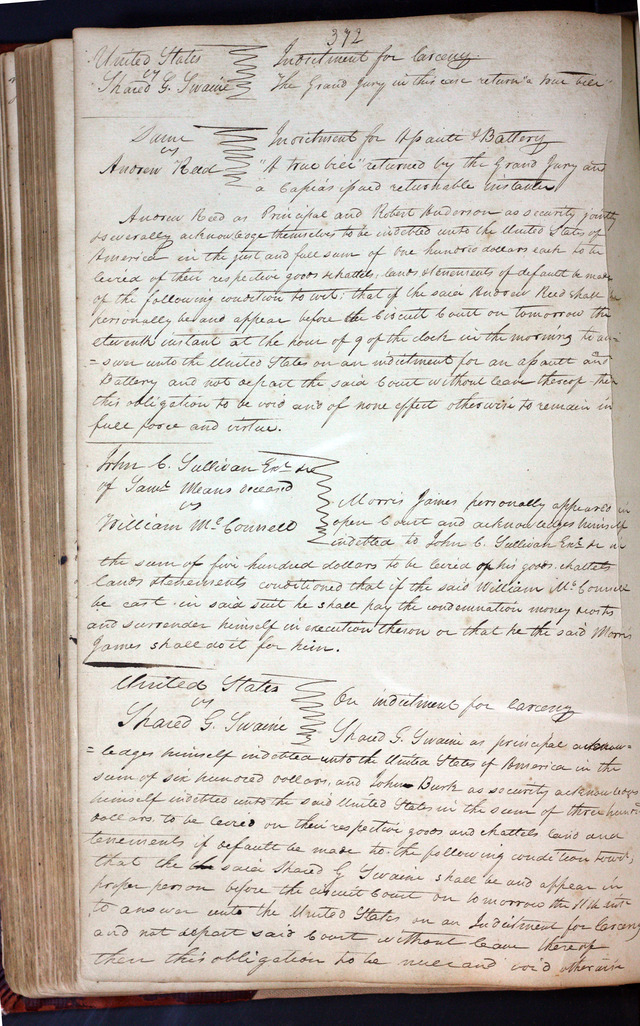 392
United States
vs
Shared G. Swaine
Indictment for larceny.
The Grand Jury in this case return "a true bill"
Same
vs
Andrew Reed
Indictment for Assault & Battery
"A true bill" returned by the Grand Jury and
a Capias issued returnable instanter
Andrew Reed as Principal and Robert Anderson as security jointly
& severally acknowledge themselves to be indebted unto the United States of
America in the just and full sum of One hundred dollars each to be
levied of their respective goods & chattels, lands & tenements if default be made
of the following condition to wit; that if the said Andrew Reed shall be
personally be and appear before the Circuit Court on tomorrow the
eleventh instant at the hour of 9 of the clock in the morning to an=
=swer unto the United States on an indictment for an assault and
Battery and not depart the said Court without leave thereof then
this obligation to be void and of none effect otherwise to remain in
full force and virtue.
John C. Sullivan Exr. &c
of Saml. Means deceased
vs
William McConnell
Morris James personally appeared in
open Court and acknowledges himself
indebted to John C. Sullivan Exr. &c in
the sum of five hundred dollars to be levied of his goods, chattels
lands & tenements conditioned that if the said William McConnell
be cast in said suit he shall pay the condemnation money & costs
and surrender himself in execution theron or that he the said Morris
James shall do it for him.
United States
vs
Shared G. Swaine
On indictment for larceny
Shared G. Swaine as principal acknow=
=ledges himself indebted unto the United States of America in the
sum of six hundred dollars, and John Burk as security acknowledges
himself indebted unto the said United States in the sum of three hundred
dollars to be levied on their respective goods and chattels land and
tenements if default be made to the following condition towit,
that the said Shared G Swaine shall be and appear in
proper person before the circuit Court on tomorrow the 11th inst
to answer unto the United States on an Indictment for larceny
and not depart said Court without leave thereof
then this obligation to be null and void otherwise